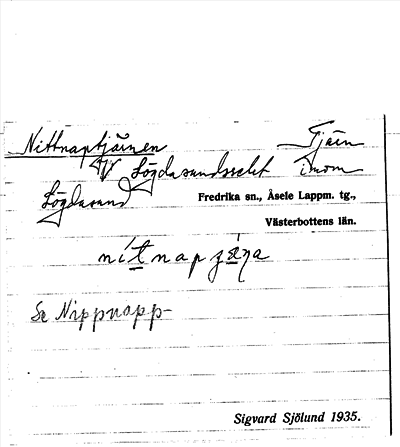 Nittnaptjärnen Tjärn
NV Lögdasundsselet inom
Lögdasund Fredrika sn., Åsele Lappm. tg.,
Västerbottens län.
Se Nippnapp-
Sigvard Sjölund 1935.